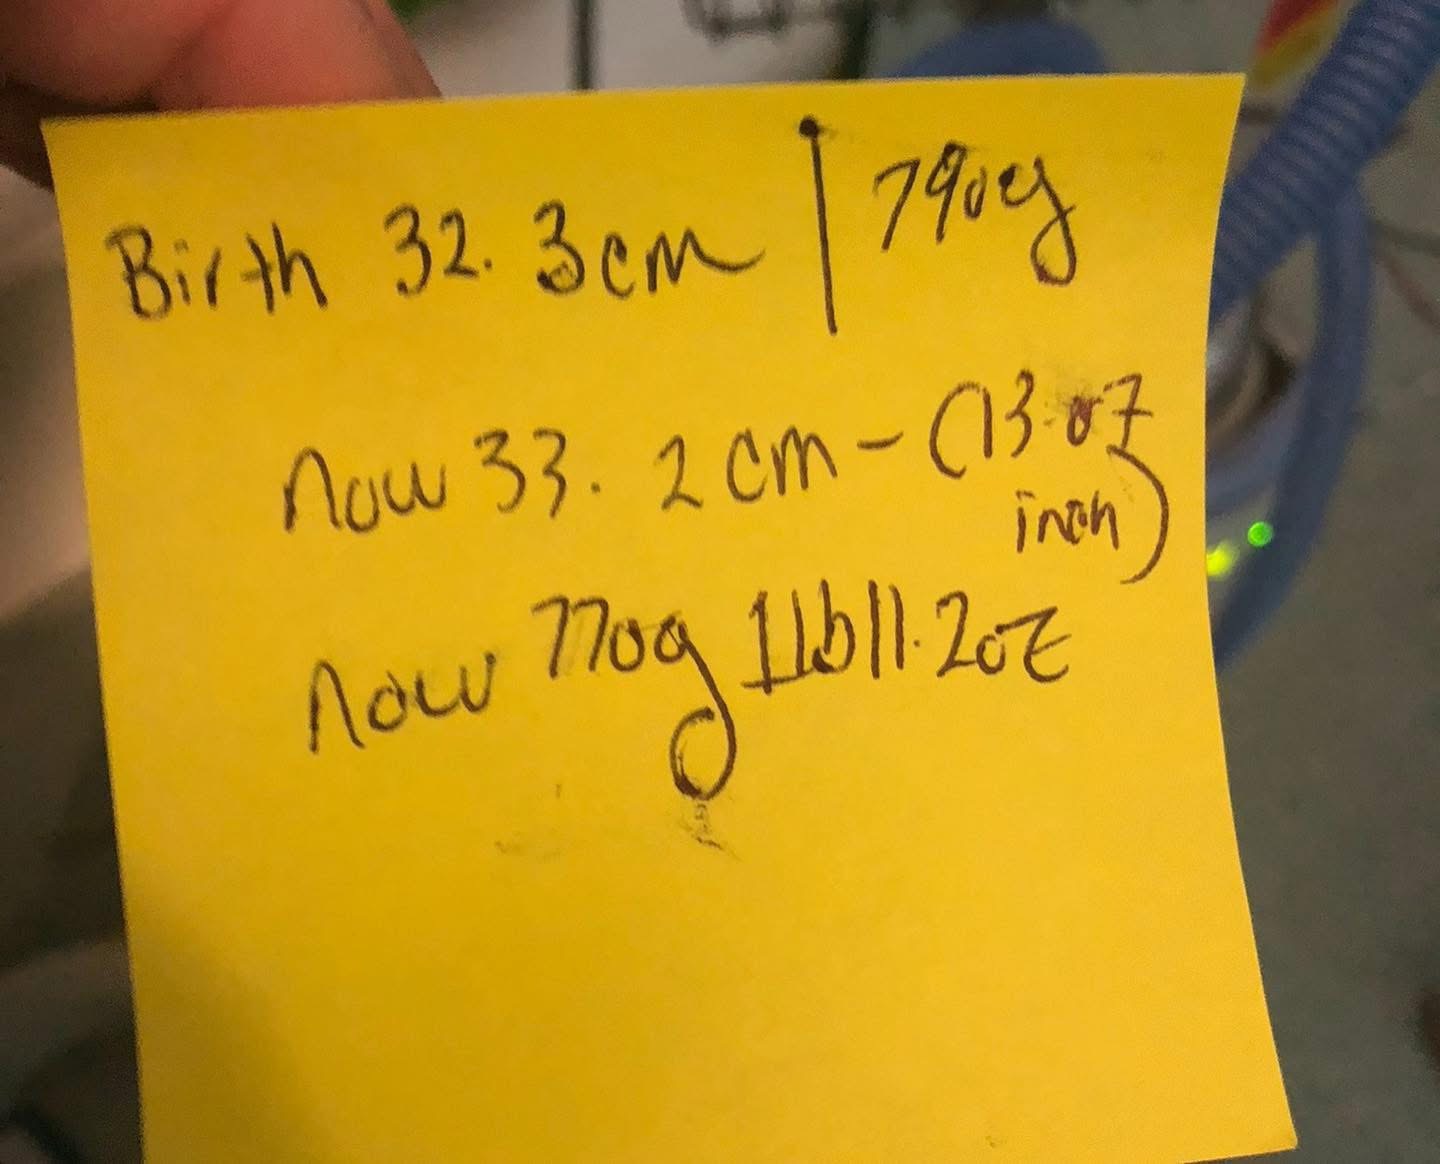 Birth 32.3cm | 790g
now 33.2cm - (13.07
inch)
now 770g 1lb11.2oz